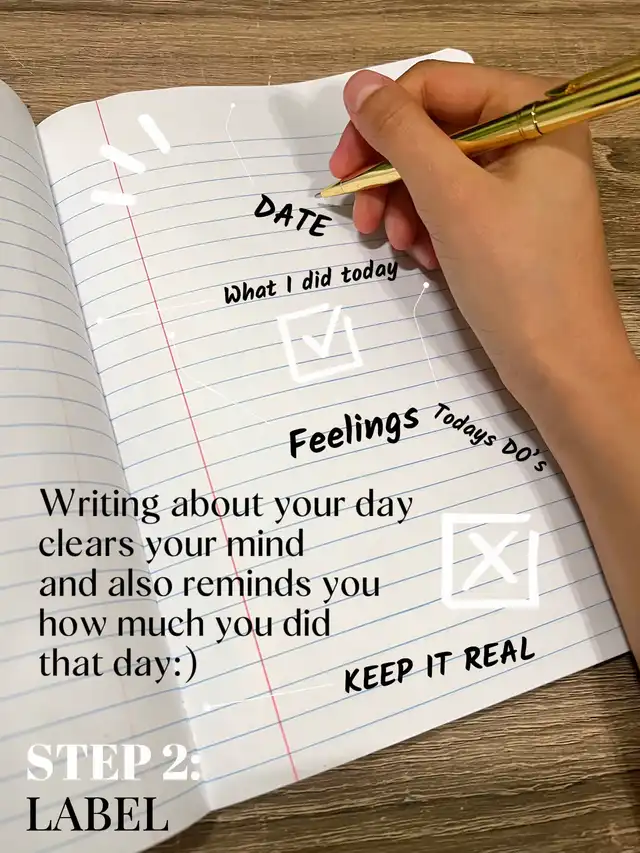 DATE
What I did today
Feelings
Todays DO's
Writing about your day
clears your mind
and also reminds you
how much you did
that day:)
KEEP IT REAL
STEP 2:
LABEL